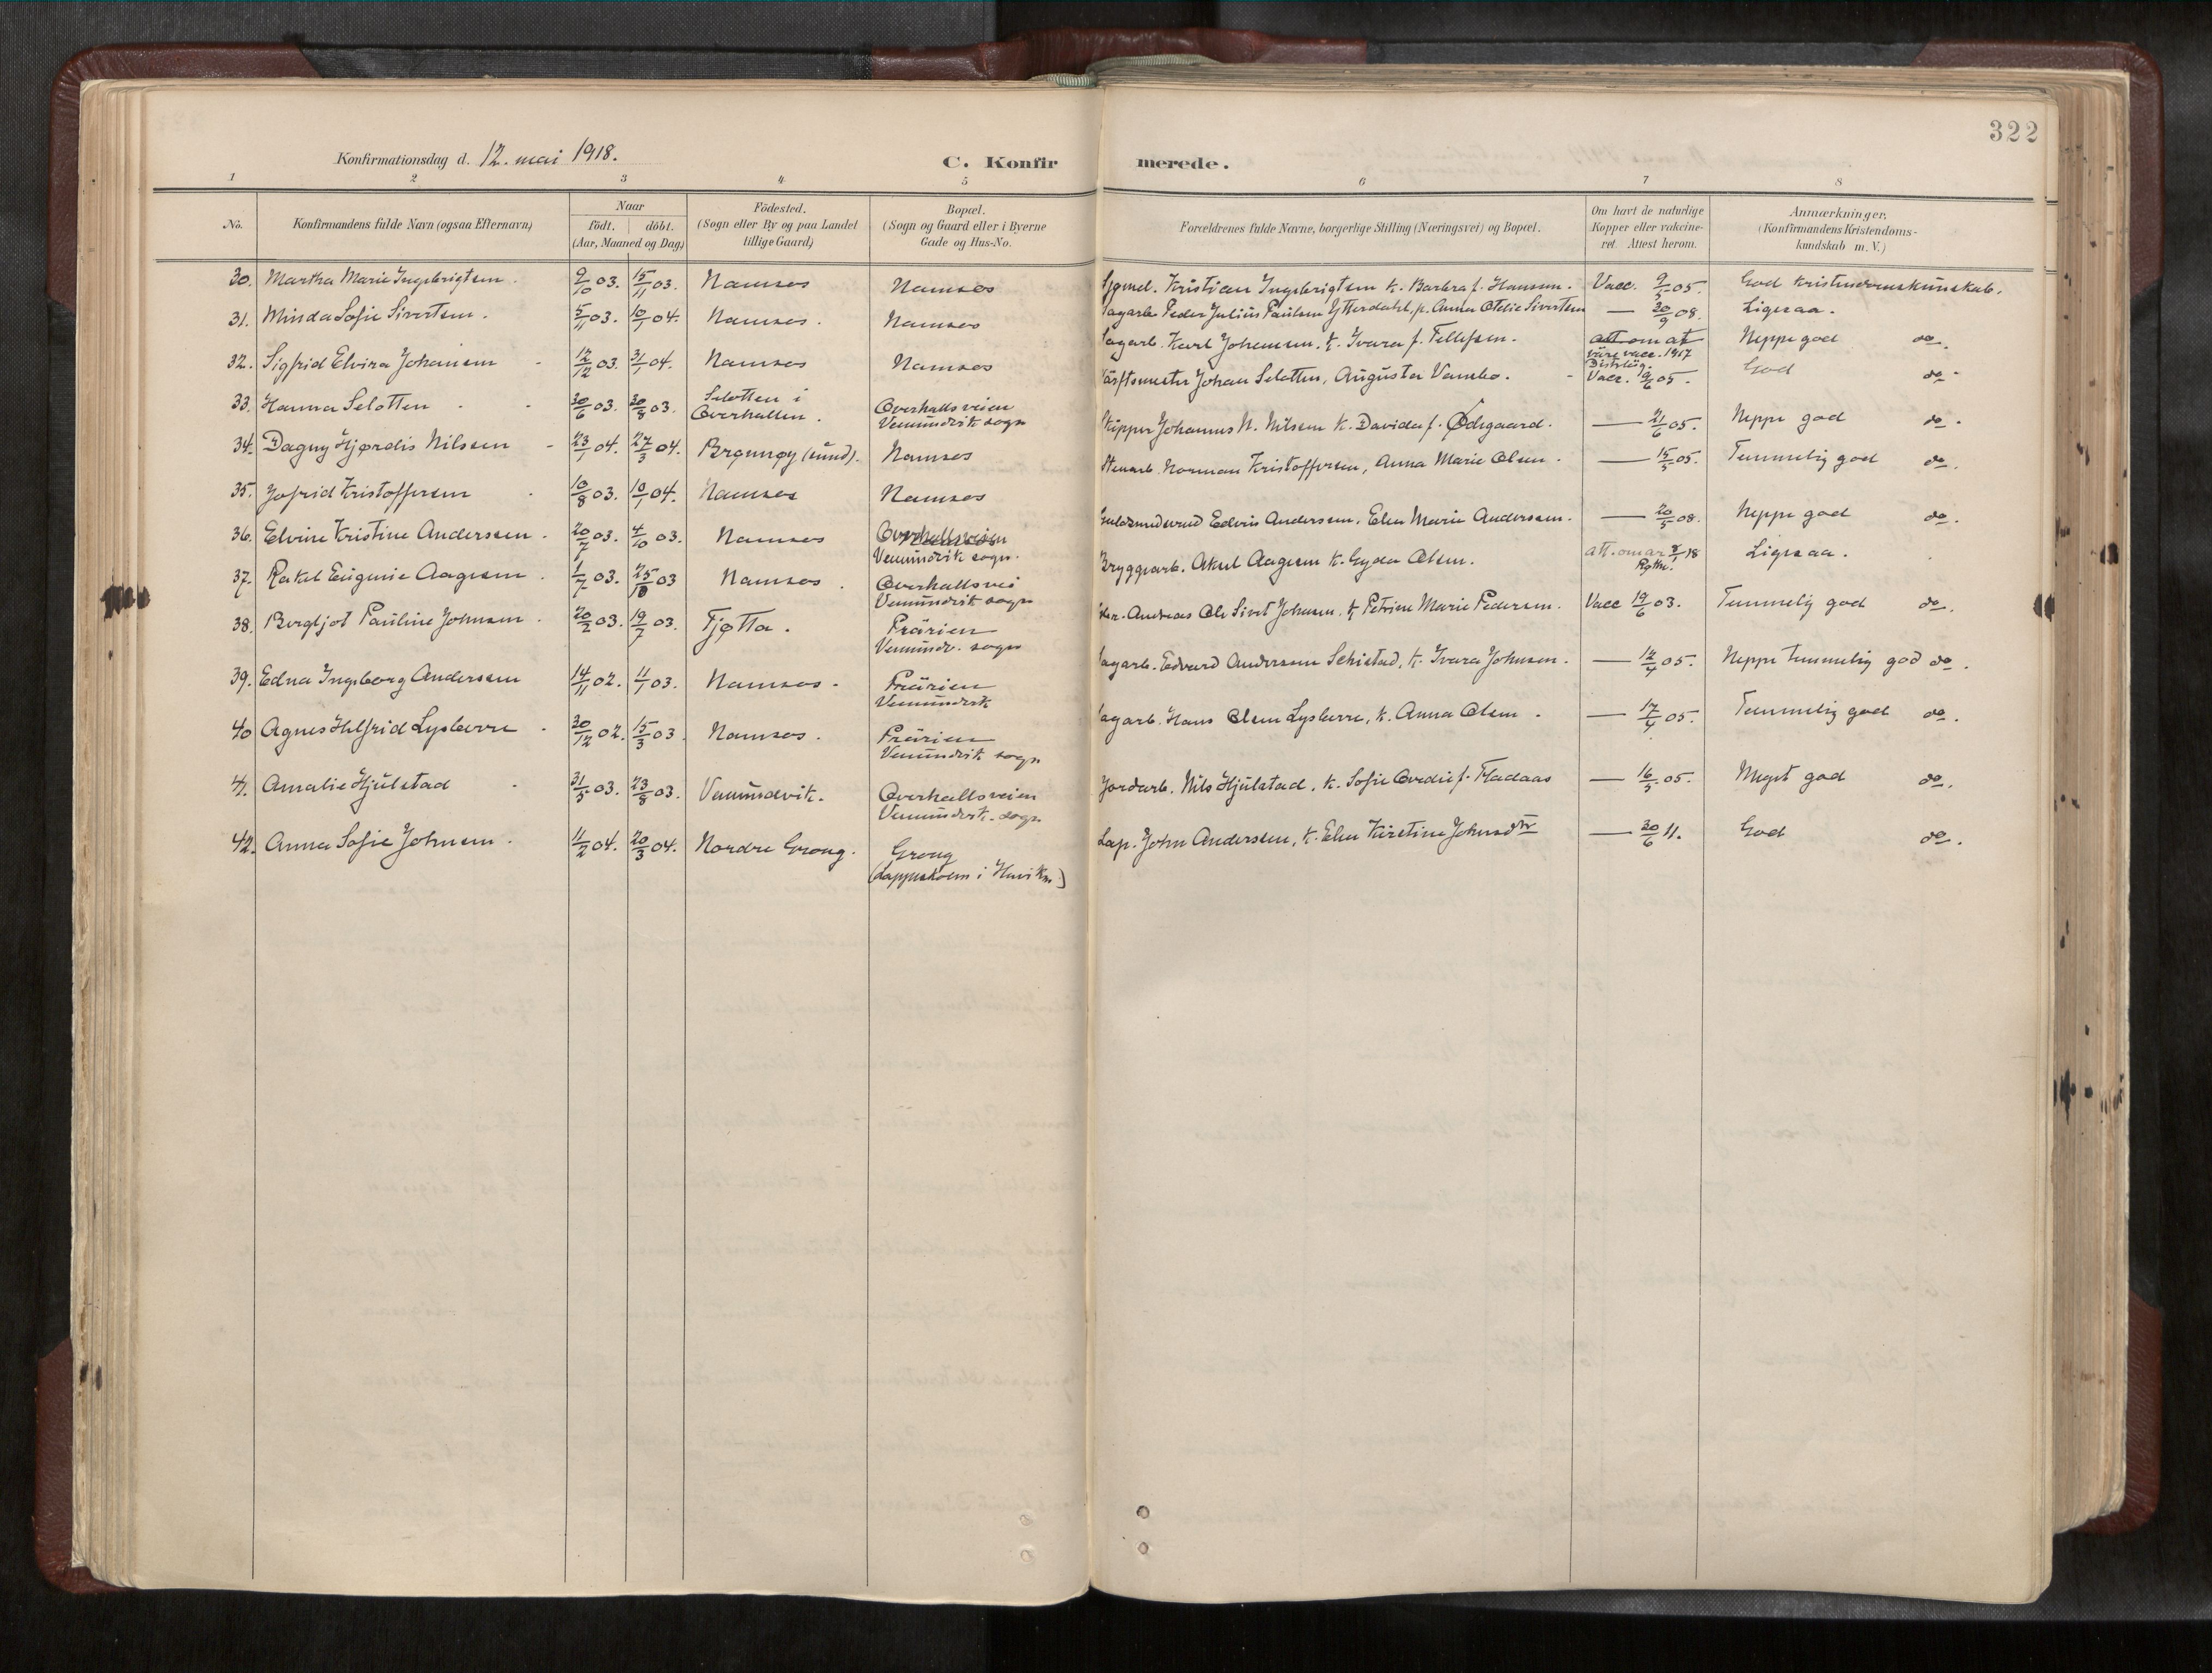 322
Konfirmationsdag d. 12. mai 1918.
C. Konfir merede.
1 2 3 4 5 6 7 8
No. Konfirmandens fulde Navn (ogsaa Efternavn) Naar födt. döbt. (Aar, Maaned og Dag) Födested. (Sogn eller By og paa Landet tillige Gaard) Bopæl. (Sogn og Gaard eller i Byerne Gade og Hus-No. Forældrenes fulde Navne, borgerlige Stilling (Næringsvei) og Bopæl. Om havt de naturlige Kopper eller vakcineret. Attest herom. Anmærkninger. (Konfirmandens Kristendomskundskab m. V.)
30. Martha Marie Ingebrigtsen. 9/10 03. 15/11 03. Namsos Namsos Kristian Ingebrigtsen k. Barbra f. Hansen. Vacc. 9/5 05. God kristendomskunskab.
31. Minda Sofie Sivertsen. 5/11 03. 10/1 04. Namsos. Namsos Sagarb. Peder Julius Paulsen Ytterdahl, p. Anna Otelie Sivertsen — 30/9 08. Ligesaa.
32. Sigfrid Elvira Johansen 12/12 03. 31/1 04. Namsos Namsos Sagarb. Karl Johansen. k. Ivara f. Tellefsen. att om at være vacc. 1917 Neppe god do.
33. Hanna Seletten 30/6 03. 30/8 03. Seletten i Overhallen. Overhallsveien Vemundvik sogn Johan Seletten, Augusta Vambo. Vacc. 9/6 05. God do.
34. Dagny Hjørdis Nilssen 23/1 04. 27/3 04. Brønnøy (sund). Namsos Skipper Johannes N. Nilsen k. Davida f. Ødegaard. — 21/6 05. Neppe god do.
35. Jofrid Kristoffersen 10/8 03. 10/1 04. Namsos Namsos Stenarb. Norman Kristoffersen, Anna Marie Olsen. — 15/5 05. Temmelig god do.
36. Elvine Kristine Andersen. 20/7 03. 4/10 03. Namsos Overhallsveien Vemundvik sogn. Guldsmedsvend Edvin Andersen, Elen Marie Andersen. — 20/5 08. Neppe god do.
37. Rakel Eugenie Aagesen. 1/7 03. 25/10 03 Namsos. Overhallsvei Vemundvik sogn Bryggearb. Aksel Aagesen k. Gyda Olsen. att. om ar 8/1 18 Ligesaa.
38. Bergljot Pauline Johnsen. 20/2 03. 19/7 03. Tjøtta. Prärien Vemundv. sogn Andreas Ole Sivert Johnsen. k Petrine Marie Pedersen. Vacc 19/6 03. Temmelig god do.
39. Edna Ingeborg Andersen 14/11 02. 11/1 03. Namsos. Prärien Vemundvik Sagarb. Edvard Andersen Sehistad, k. Ivara Johnsen. — 12/4 05. Neppe temmelig god do.
40 Agnes Helfrid Lysberre 30/12 02. 15/3 03. Namsos. Prärien Vemundvik sogn Sagarb. Hans Olsen Lysberre, k. Anna Olsen. — 17/4 05. Temmelig god do.
41. Amalie Hjulstad 31/5 03. 23/8 03. Vemundvik. Overhallsveien Vemundvik. sogn Jordarb. Nils Hjulstad, k. Sofie Ovedie f. Fladaas — 16/5 05. Meget god do.
42. Anna Sofie Johnsen. 11/2 04. 20/3 04. Nordre Grong. Grong (Lappeskolen i Havikn.) Lap. John Andersen, k. Elen Kirstine Johnsdtr — 30/6 11. God do.